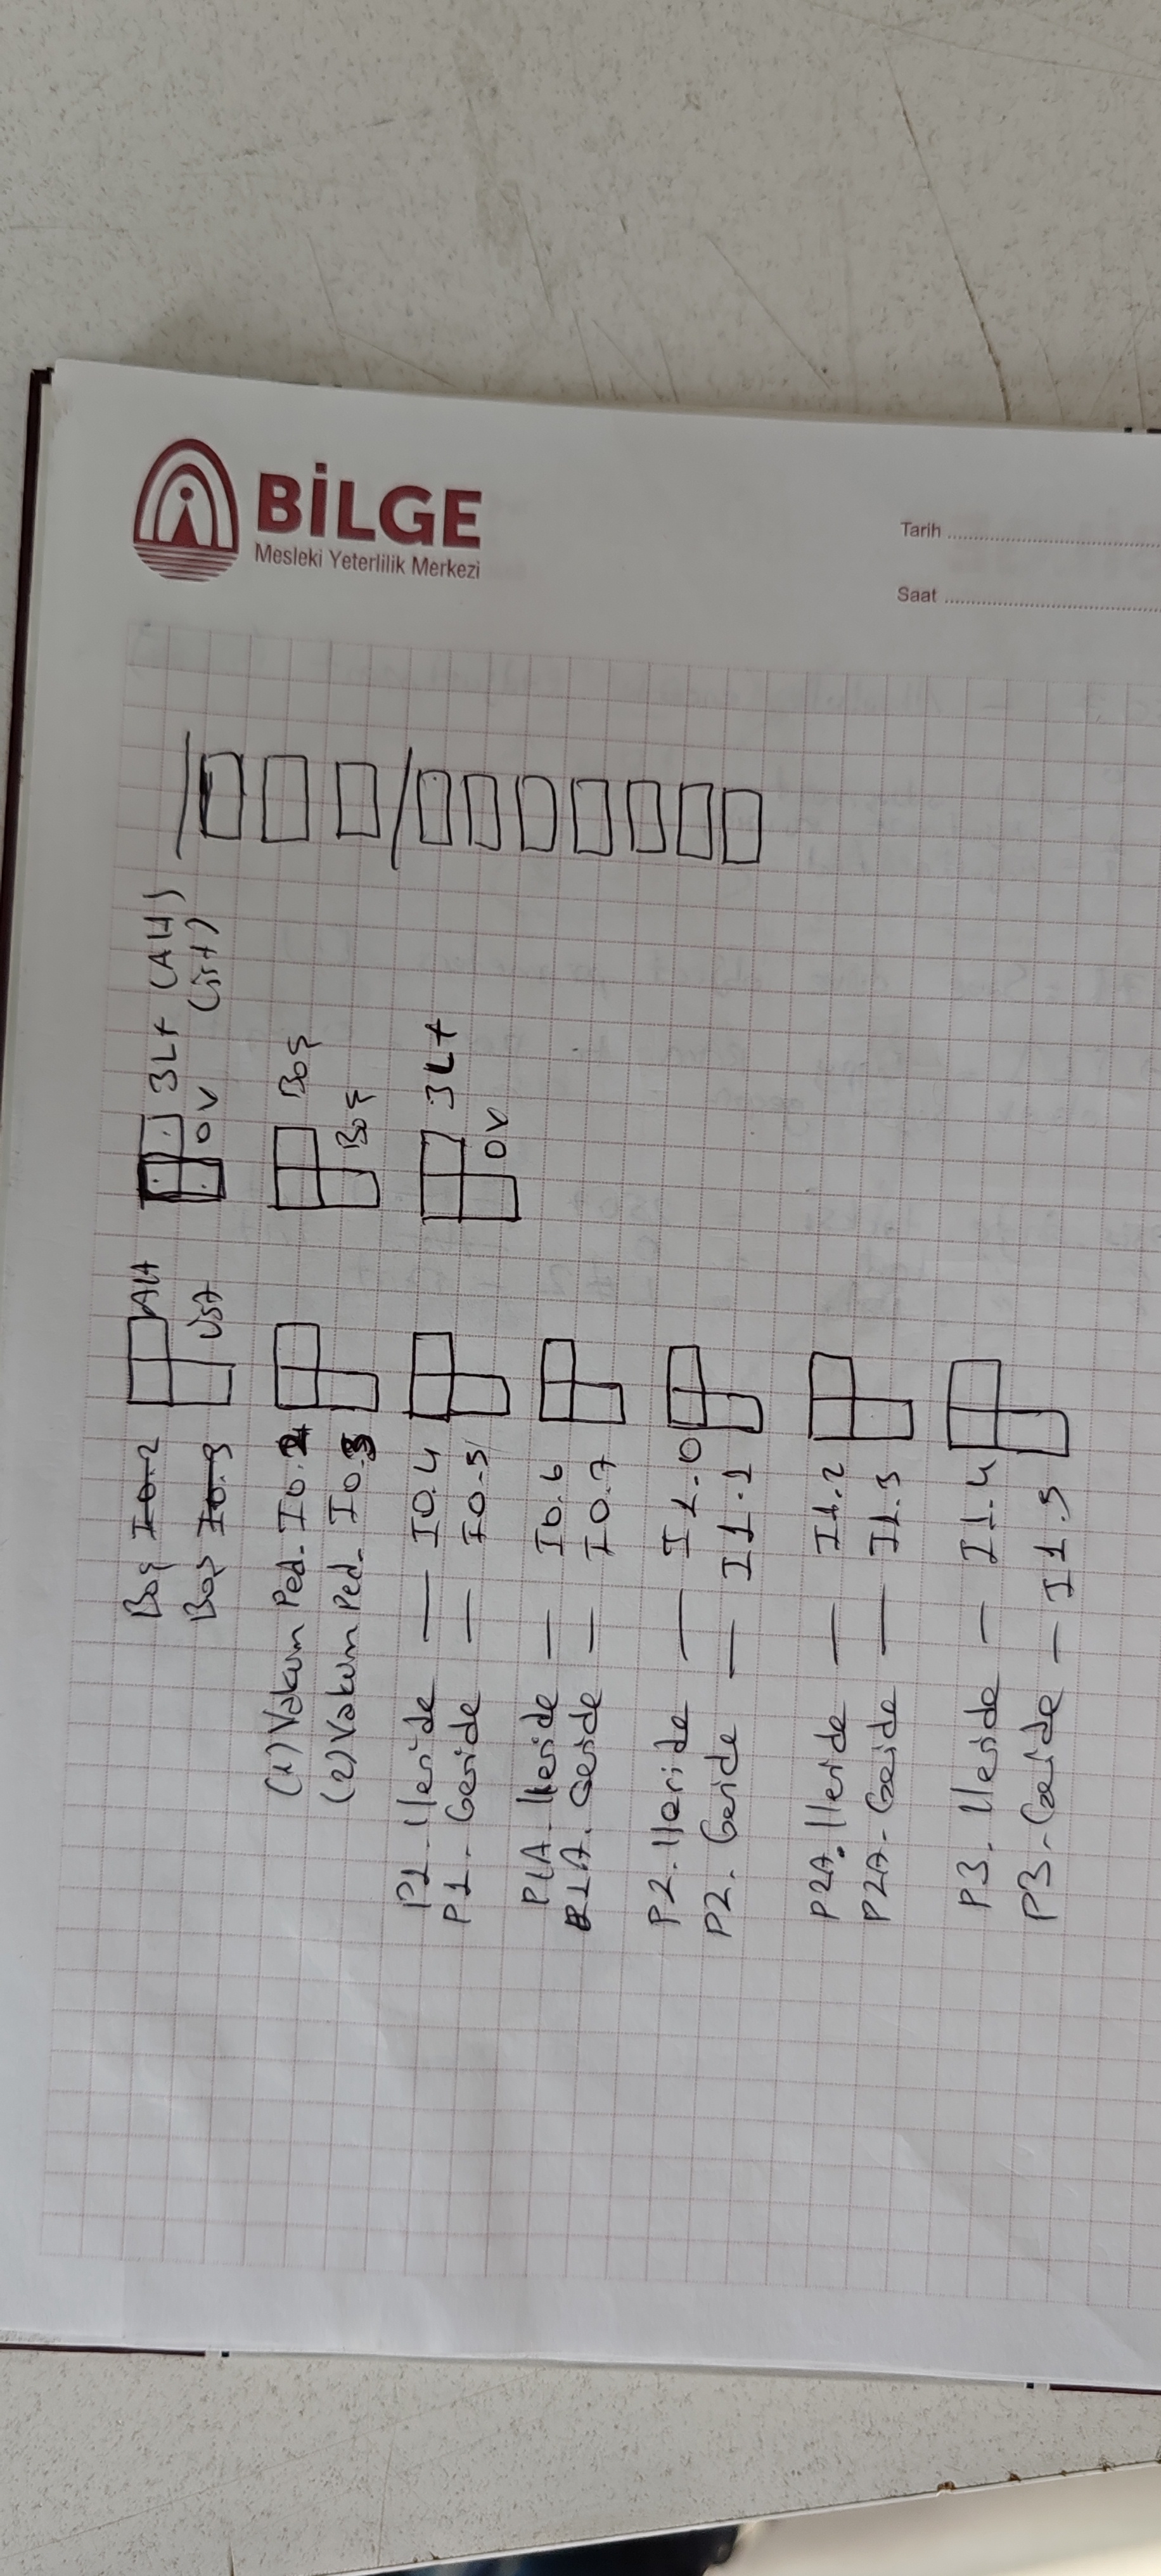 BİLGE
Mesleki Yeterlilik Merkezi
Tarih
Saat
Boş I0.2 Alt
Boş I0.3 Üst
(1) Vakum Ped. I0.2
(2) Vakum Ped. I0.3
P1 - İleride — I0.4
P1 - Geride — I0.5
P1A - İleride — I0.6
P1A - Geride — I0.7
P2. İleride — I1.0
P2. Geride — I1.1
P2A. İleride — I1.2
P2A - Geride — I1.3
P3 - İleride — I1.4
P3 - Geride — I1.5
3L+ (Alt)
0V (Üst)
Boş
Boş
3L+
0V